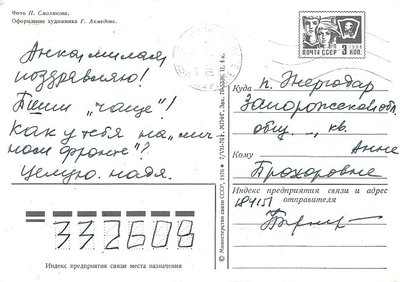 Фото П. Смолякова.
Оформление художника Г. Акмедова.
Анка, милая
поздравляю!
Пиши "чаще"!
Как у тебя на "лич
ном фронте"?
Целую. Надя.
332608
Индекс предприятия связи места назначения
© Министерство связи СССР, 1976
ПОЧТА СССР
3 КОП.
Куда п. Энергодар
Запорожская обл.
общ. –, кв.
Кому Анне
Прохоровне
Индекс предприятия связи и адрес
отправителя